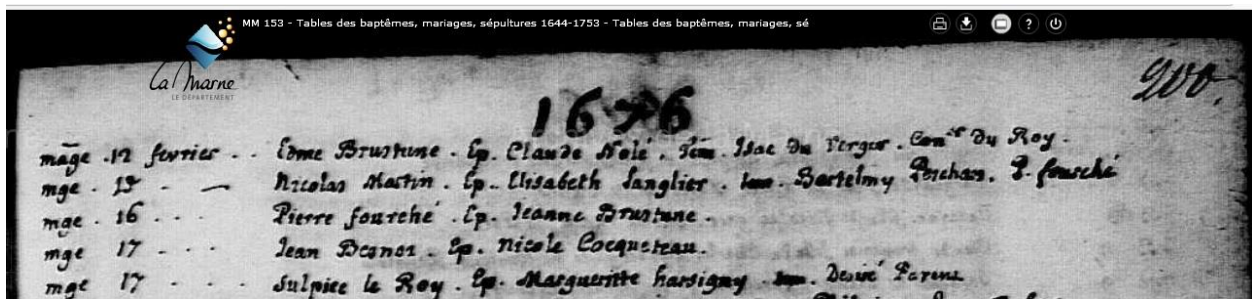 MM 153 - Tables des baptêmes, mariages, sépultures 1644-1753 - Tables des baptêmes, mariages, sé
La Marne
LE DÉPARTEMENT
200.
1676
mage . 12 fevrier . . Edme Brustune . Ep. Claude Nolé . Tem . Isac Du Verger . Con.er Du Roy .
mge . Nicolas Martin . Ep. Elisabeth Sanglier . Bartelmy Porchas . P. fourché
mge . 16 . . . Pierre fourché . Ep. Jeanne Brustune .
mge 17 . . . Jean . Ep. Nicole Cocqueteau .
mge 17 . . . Sulpice le Roy . Ep. Margueritte harsigny . Desiré Parens